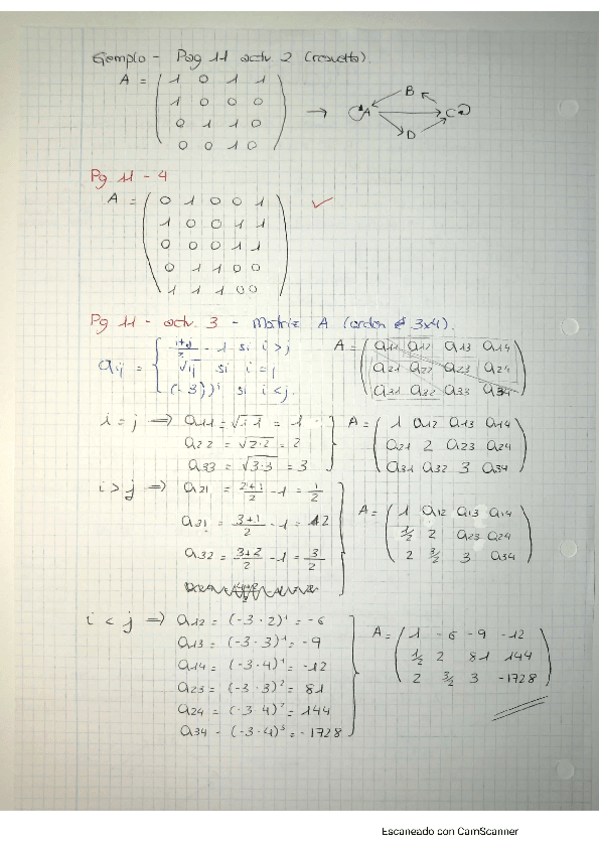 Ejemplo - Pag 11 actv 2 (resuelto).
A = ( 1 0 1 1
1 0 0 0
0 1 1 0
0 0 1 0 ) → A B C D
Pg 11 - 4
A = ( 0 1 0 0 1
1 0 0 1 1
0 0 0 1 1
0 1 1 0 0
1 1 1 0 0 ) ✓
Pg 11 - actv. 3 - Matriz A (orden 3x4).
aij = { i+j/2 - 1 si i>j
√ij si i=j
(-3j)^i si i<j.
A = ( a11 a12 a13 a14
a21 a22 a23 a24
a31 a32 a33 a34 )
i = j ⇒ a11 = √1·1 = 1
a22 = √2·2 = 2
a33 = √3·3 = 3
A = ( 1 a12 a13 a14
a21 2 a23 a24
a31 a32 3 a34 )
i > j ⇒ a21 = 2+1/2 - 1 = 1/2
a31 = 3+1/2 - 1 = 2
a32 = 3+2/2 - 1 = 3/2
A = ( 1 a12 a13 a14
1/2 2 a23 a24
2 3/2 3 a34 )
i < j ⇒ a12 = (-3·2)^1 = -6
a13 = (-3·3)^1 = -9
a14 = (-3·4)^1 = -12
a23 = (-3·3)^2 = 81
a24 = (-3·4)^2 = 144
a34 - (-3·4)^3 = -1728
A = ( 1 -6 -9 -12
1/2 2 81 144
2 3/2 3 -1728 )
Escaneado con CamScanner